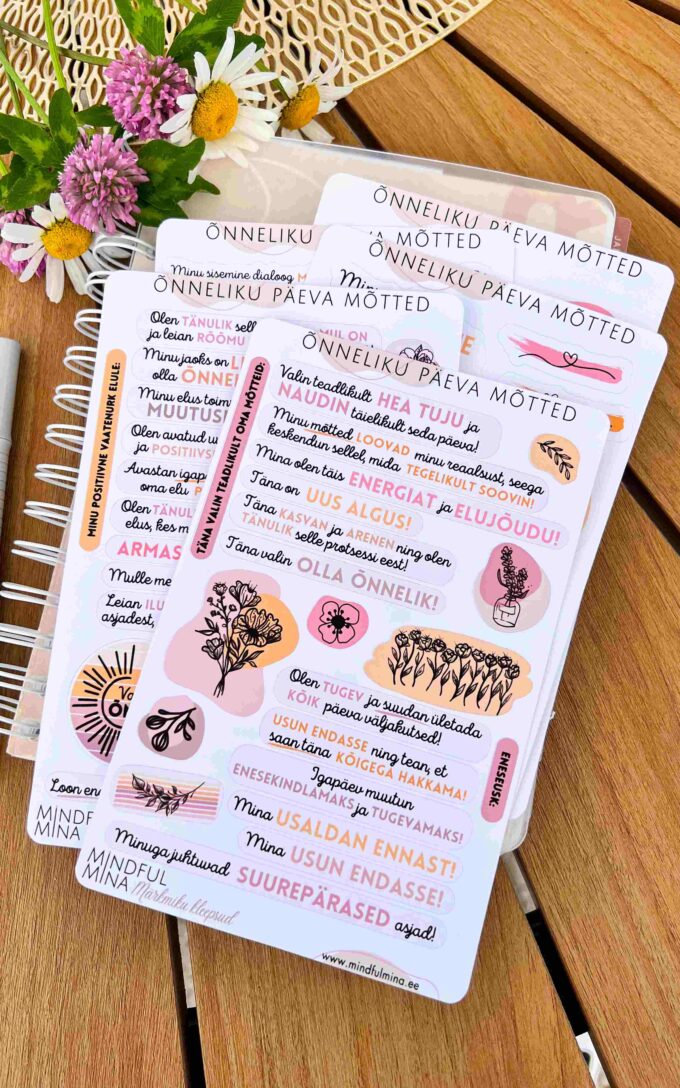 ÕNNELIKU PÄEVA MÕTTED
ÕNNELIKU PÄEVA MÕTTED
Minu sisemine dialoog
ÕNNELIKU PÄEVA MÕTTED
ÕNNELIKU PÄEVA MÕTTED
MINU POSITIIVNE VAATENURK ELULE:
Olen TÄNULIK
ja leian RÕÕMU
MUL ON
Minu jaoks on
olla
Minu elus
Olen avatud
ja
Avastan
oma elu
Olen
elus, kes
Mulle
Leian
asjadest,
Loon
MINDFUL
MINA
ÕNNELIKU PÄEVA MÕTTED
TÄNA VALIN TEADLIKULT OMA MÕTTEID:
Valin teadlikult HEA TUJU ja
NAUDIN täielikult seda päeva!
Minu mõtted LOOVAD minu reaalsust, seega
keskendun sellel, mida TEGELIKULT SOOVIN!
Mina olen täis ENERGIAT ja ELUJÕUDU!
Täna on UUS ALGUS!
Täna KASVAN ja ARENEN ning olen
TÄNULIK selle protsessi eest!
Täna valin OLLA ÕNNELIK!
Olen TUGEV ja suudan ületada
KÕIK päeva väljakutsed!
USUN ENDASSE ning tean, et
saan täna KÕIGEGA HAKKAMA!
ENESEUSK:
Igapäev muutun
ENESEKINDLAMAKS ja TUGEVAMAKS!
Mina USALDAN ENNAST!
Mina USUN ENDASSE!
Minuga juhtuvad SUUREPÄRASED asjad!
MINDFUL
MINA
Märkmiku kleepsud
www.mindfulmina.ee